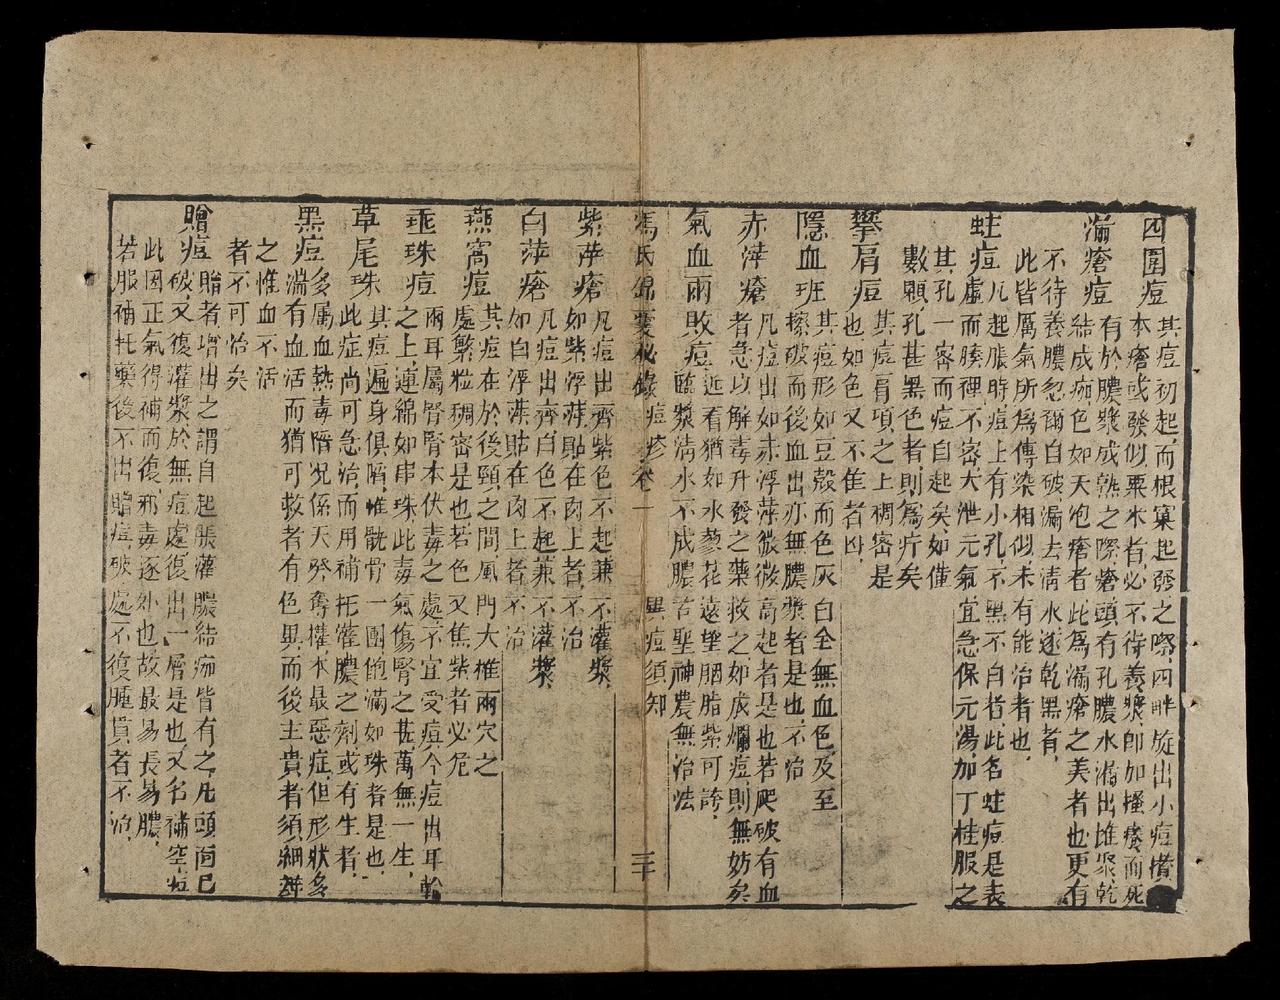 四圍痘 其痘初起而根窠起發之際四畔旋出小痘攢
本瘡或發似粟米者必不待養漿即加搔癢而死
漏瘡痘 有於膿漿成熟之際瘡頭有孔膿水漏出堆聚乾
結成痂色如天泡瘡者此為漏瘡之美者也更有
不待養膿忽爾自破漏去清水遂乾黑者
此皆厲氣所為傳染相似未有能治者也
蛀痘 凡起脹時痘上有小孔不黑不白者此名蛀痘是表
虛而腠裡不密大泄元氣宜急保元湯加丁桂服之
其孔一密而痘自起矣如僅
數顆孔甚黑色者則為疔矣
攀肩痘 其痘肩項之上稠密是
也如色又不佳者凶
隱血班 其痘形如豆殼而色灰白全無血色及至
擦破而後血出亦無膿漿者是也不治
赤萍瘡 凡痘出如赤浮萍微微高起者是也若爬破有血
者急以解毒升發之藥救之如成爛痘則無妨矣
氣血兩敗痘 近看猶如水蓼花遠望胭脂紫可誇
臨漿清水不成膿古聖神農無治法
馮氏錦囊秘錄 痘疹 卷一 異痘須知 三十
紫萍瘡 凡痘出齊紫色不起兼不灌漿
如紫浮萍貼在肉上者不治
白萍瘡 凡痘出齊白色不起兼不灌漿
如白浮萍貼在肉上者不治
燕窩痘 其痘在於後頸之間風門大椎兩穴之
處繁粒稠密是也若色又焦紫者必危
垂珠痘 兩耳屬腎腎本伏毒之處不宜受痘今痘出耳輪
之上連綿如串珠此毒氣傷腎之甚萬無一生
草尾珠 其痘遍身俱陷惟骶骨一團飽滿如珠者是也
此症尚可急治而用補托灌膿之劑或有生者
黑痘 多屬血熱毒陷況係天癸奪權本最惡症但形狀多
端有血活而猶可救者有色異而後主貴者須細辨
之惟血不活
者不可治矣
贈痘 贈者增出之謂自起脹灌膿結痂皆有之凡頭面已
破又復灌漿於無痘處復出一層是也又名補空痘
此因正氣得補而復邪毒逐外也故最易長易膿
若服補托藥後不出贈痘破處不復腫貫者不治